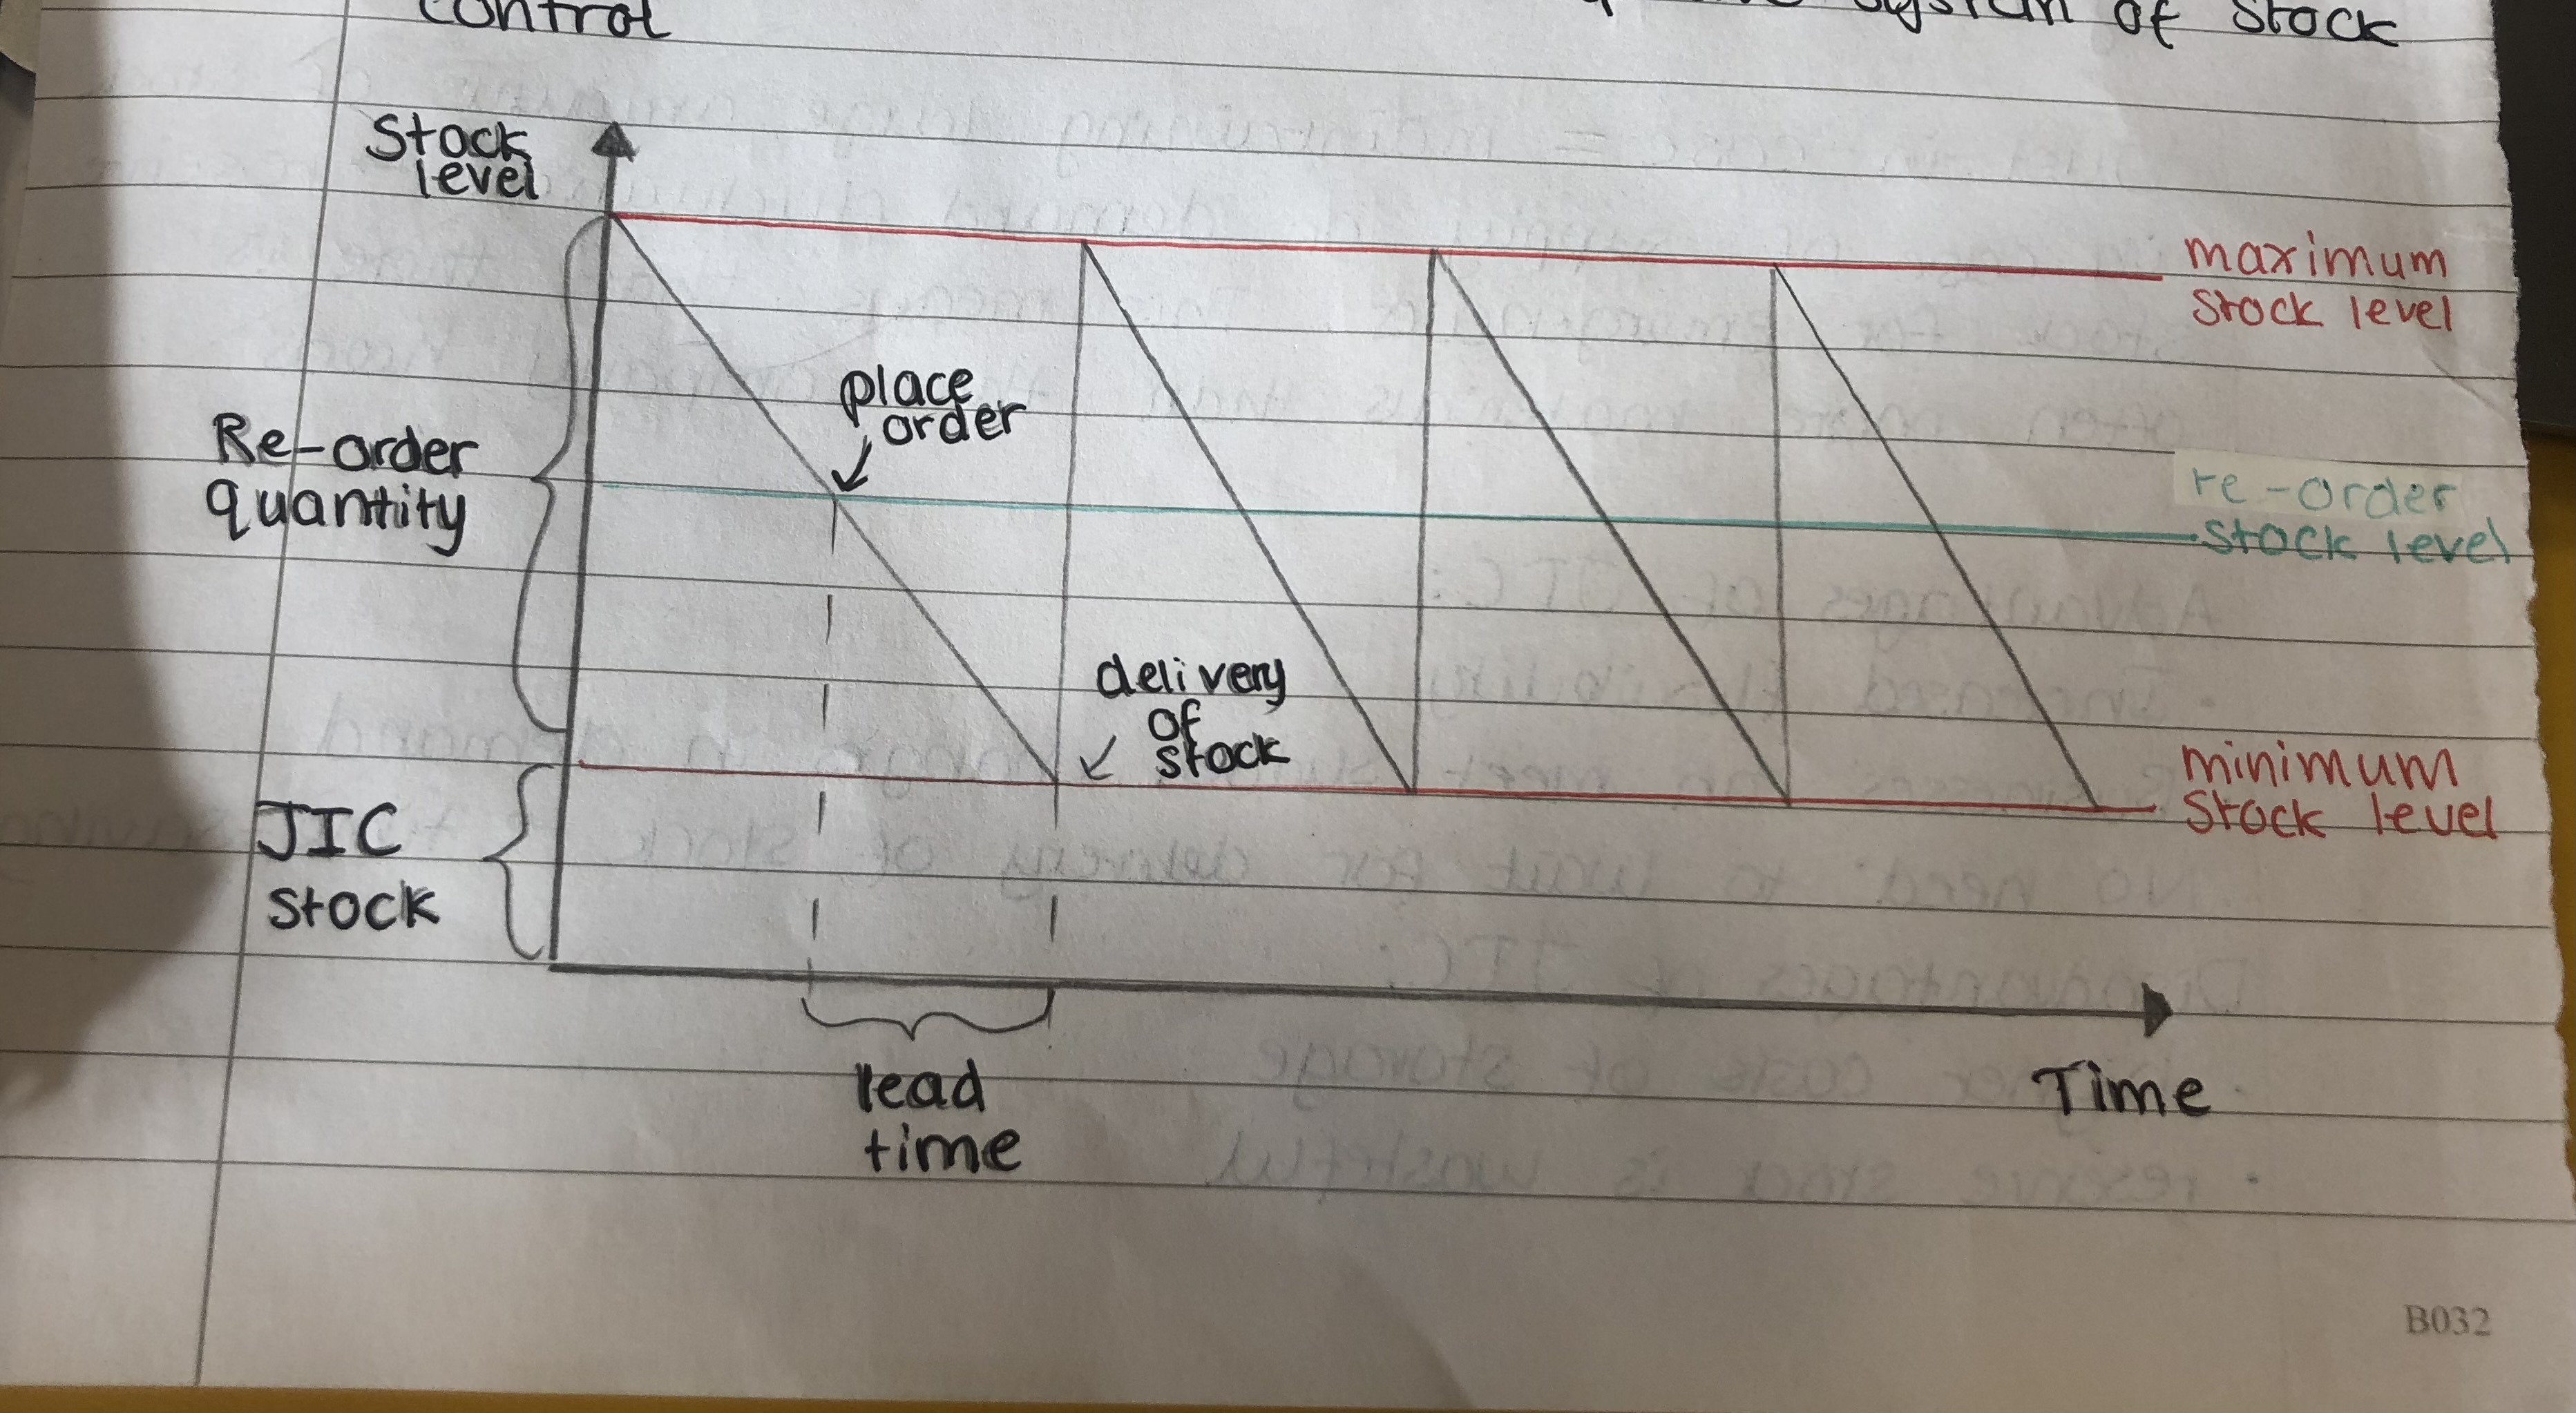 control system of stock
Stock
level
maximum
stock level
place
order
Re-order
quantity
re-order
stock level
delivery
of
stock
minimum
stock level
JIC
stock
lead
time
Time
B032